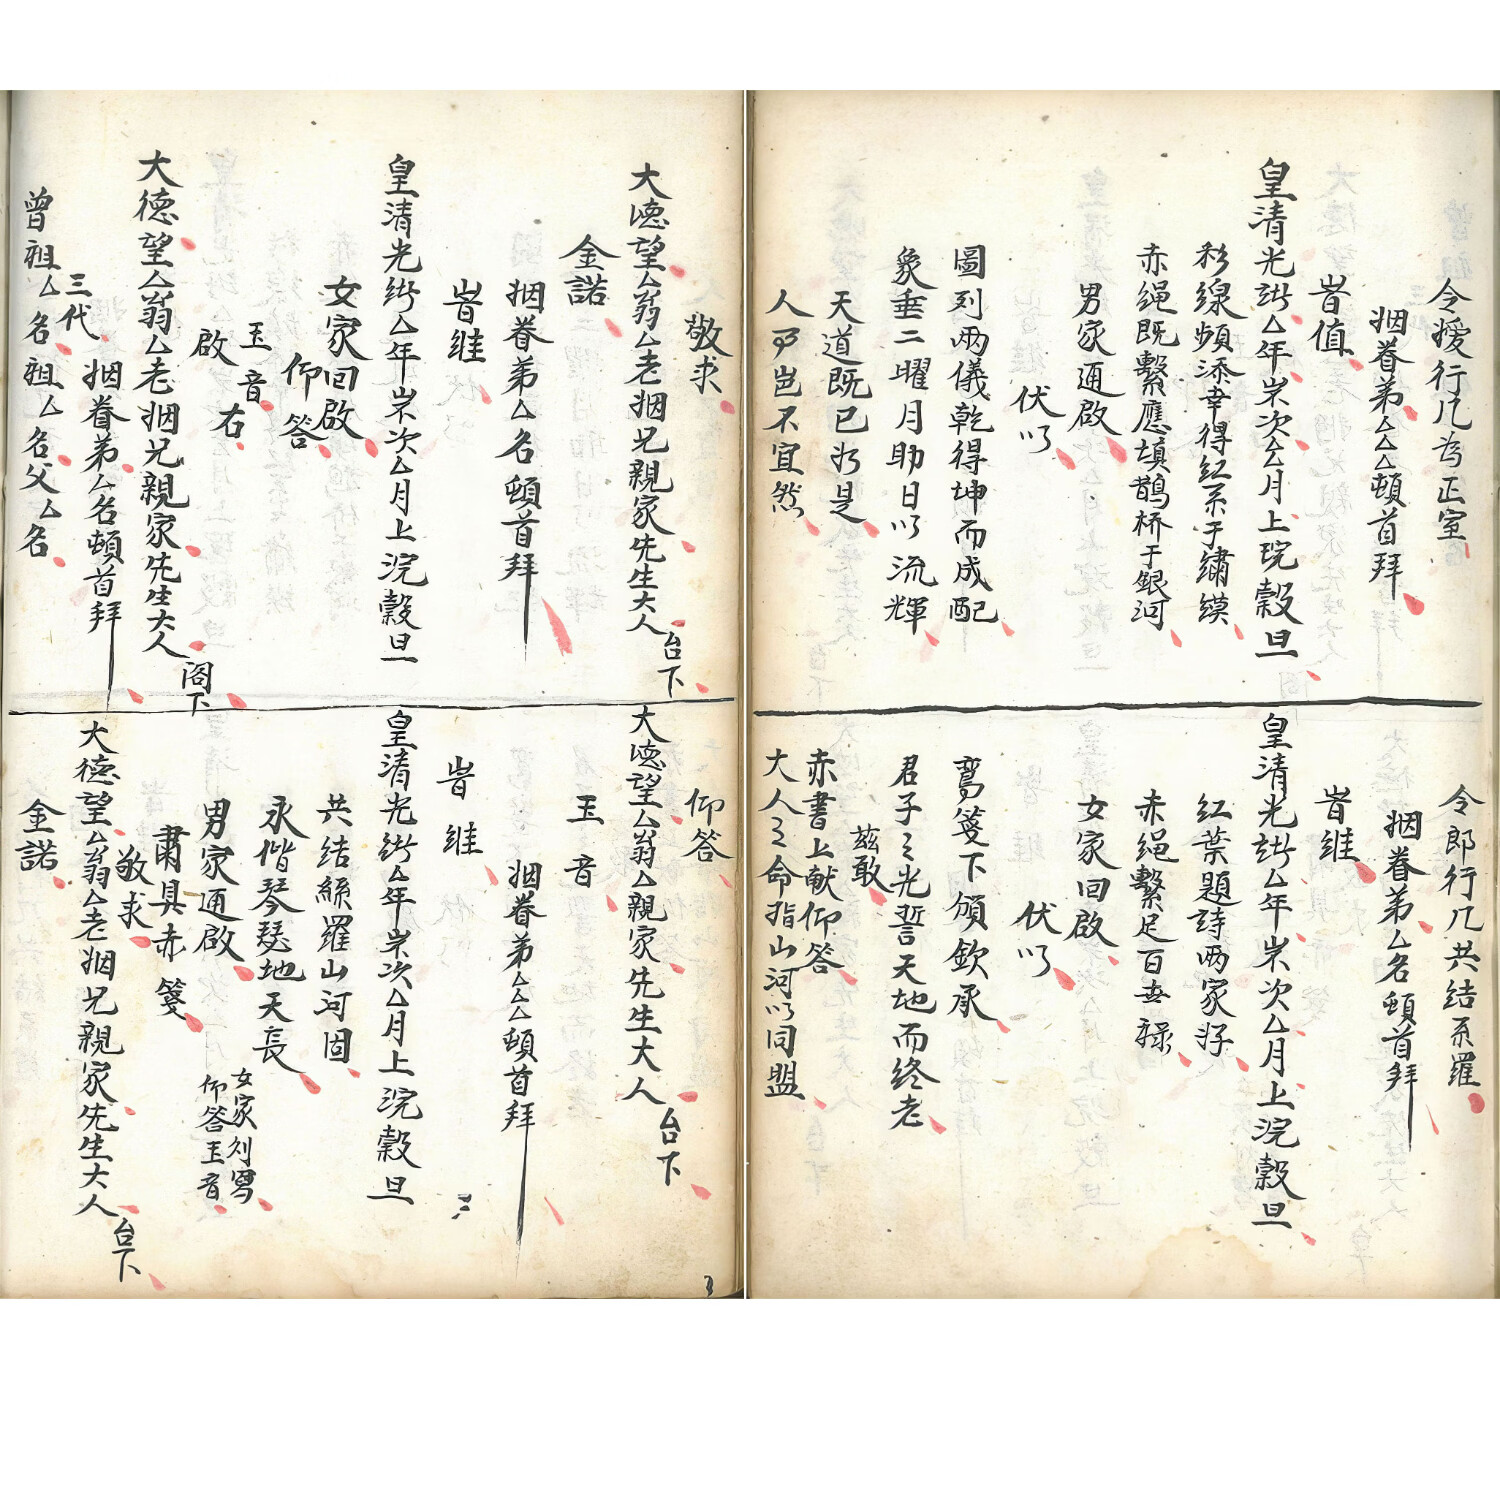 令嫒行几為正室
姻眷弟厶厶頓首拜
旹值
皇清光緒厶年歲次厶月上浣穀旦
彩線頻添幸得紅系于繡幙
赤绳既繫應填鵲桥于銀河
男家通啟
伏以
圖列两儀乾得坤而成配
象垂二曜月助日以流輝
天道既已於是
人事豈不宜然
令郎行几共结系羅
姻眷弟厶名頓首拜
旹维
皇清光緒厶年歲次厶月上浣穀旦
红葉題詩两家好
赤绳繫足百世禄
女家回啟
伏以
鸞箋下頒欽承
君子之光誓天地而终老
茲敢
赤書上献仰答
大人之命指山河以同盟
敬求
大德望厶翁厶老姻兄親家先生大人台下
金諾
姻眷弟厶名頓首拜
旹维
皇清光緒厶年歲次厶月上浣穀旦
女家回啟
仰答
玉音
右
啟
大德望厶翁厶老姻兄親家先生大人阁下
姻眷弟厶名頓首拜
三代
曾祖厶名祖厶名父厶名
仰答
大德望厶翁厶親家先生大人台下
玉音
姻眷弟厶厶頓首拜
旹维
皇清光緒厶年歲次厶月上浣穀旦
共结絲羅山河固
永偕琴瑟地天長
男家通啟
女家列寫
仰答玉音
肅具赤箋
敬求
大德望厶翁厶老姻兄親家先生大人台下
金諾